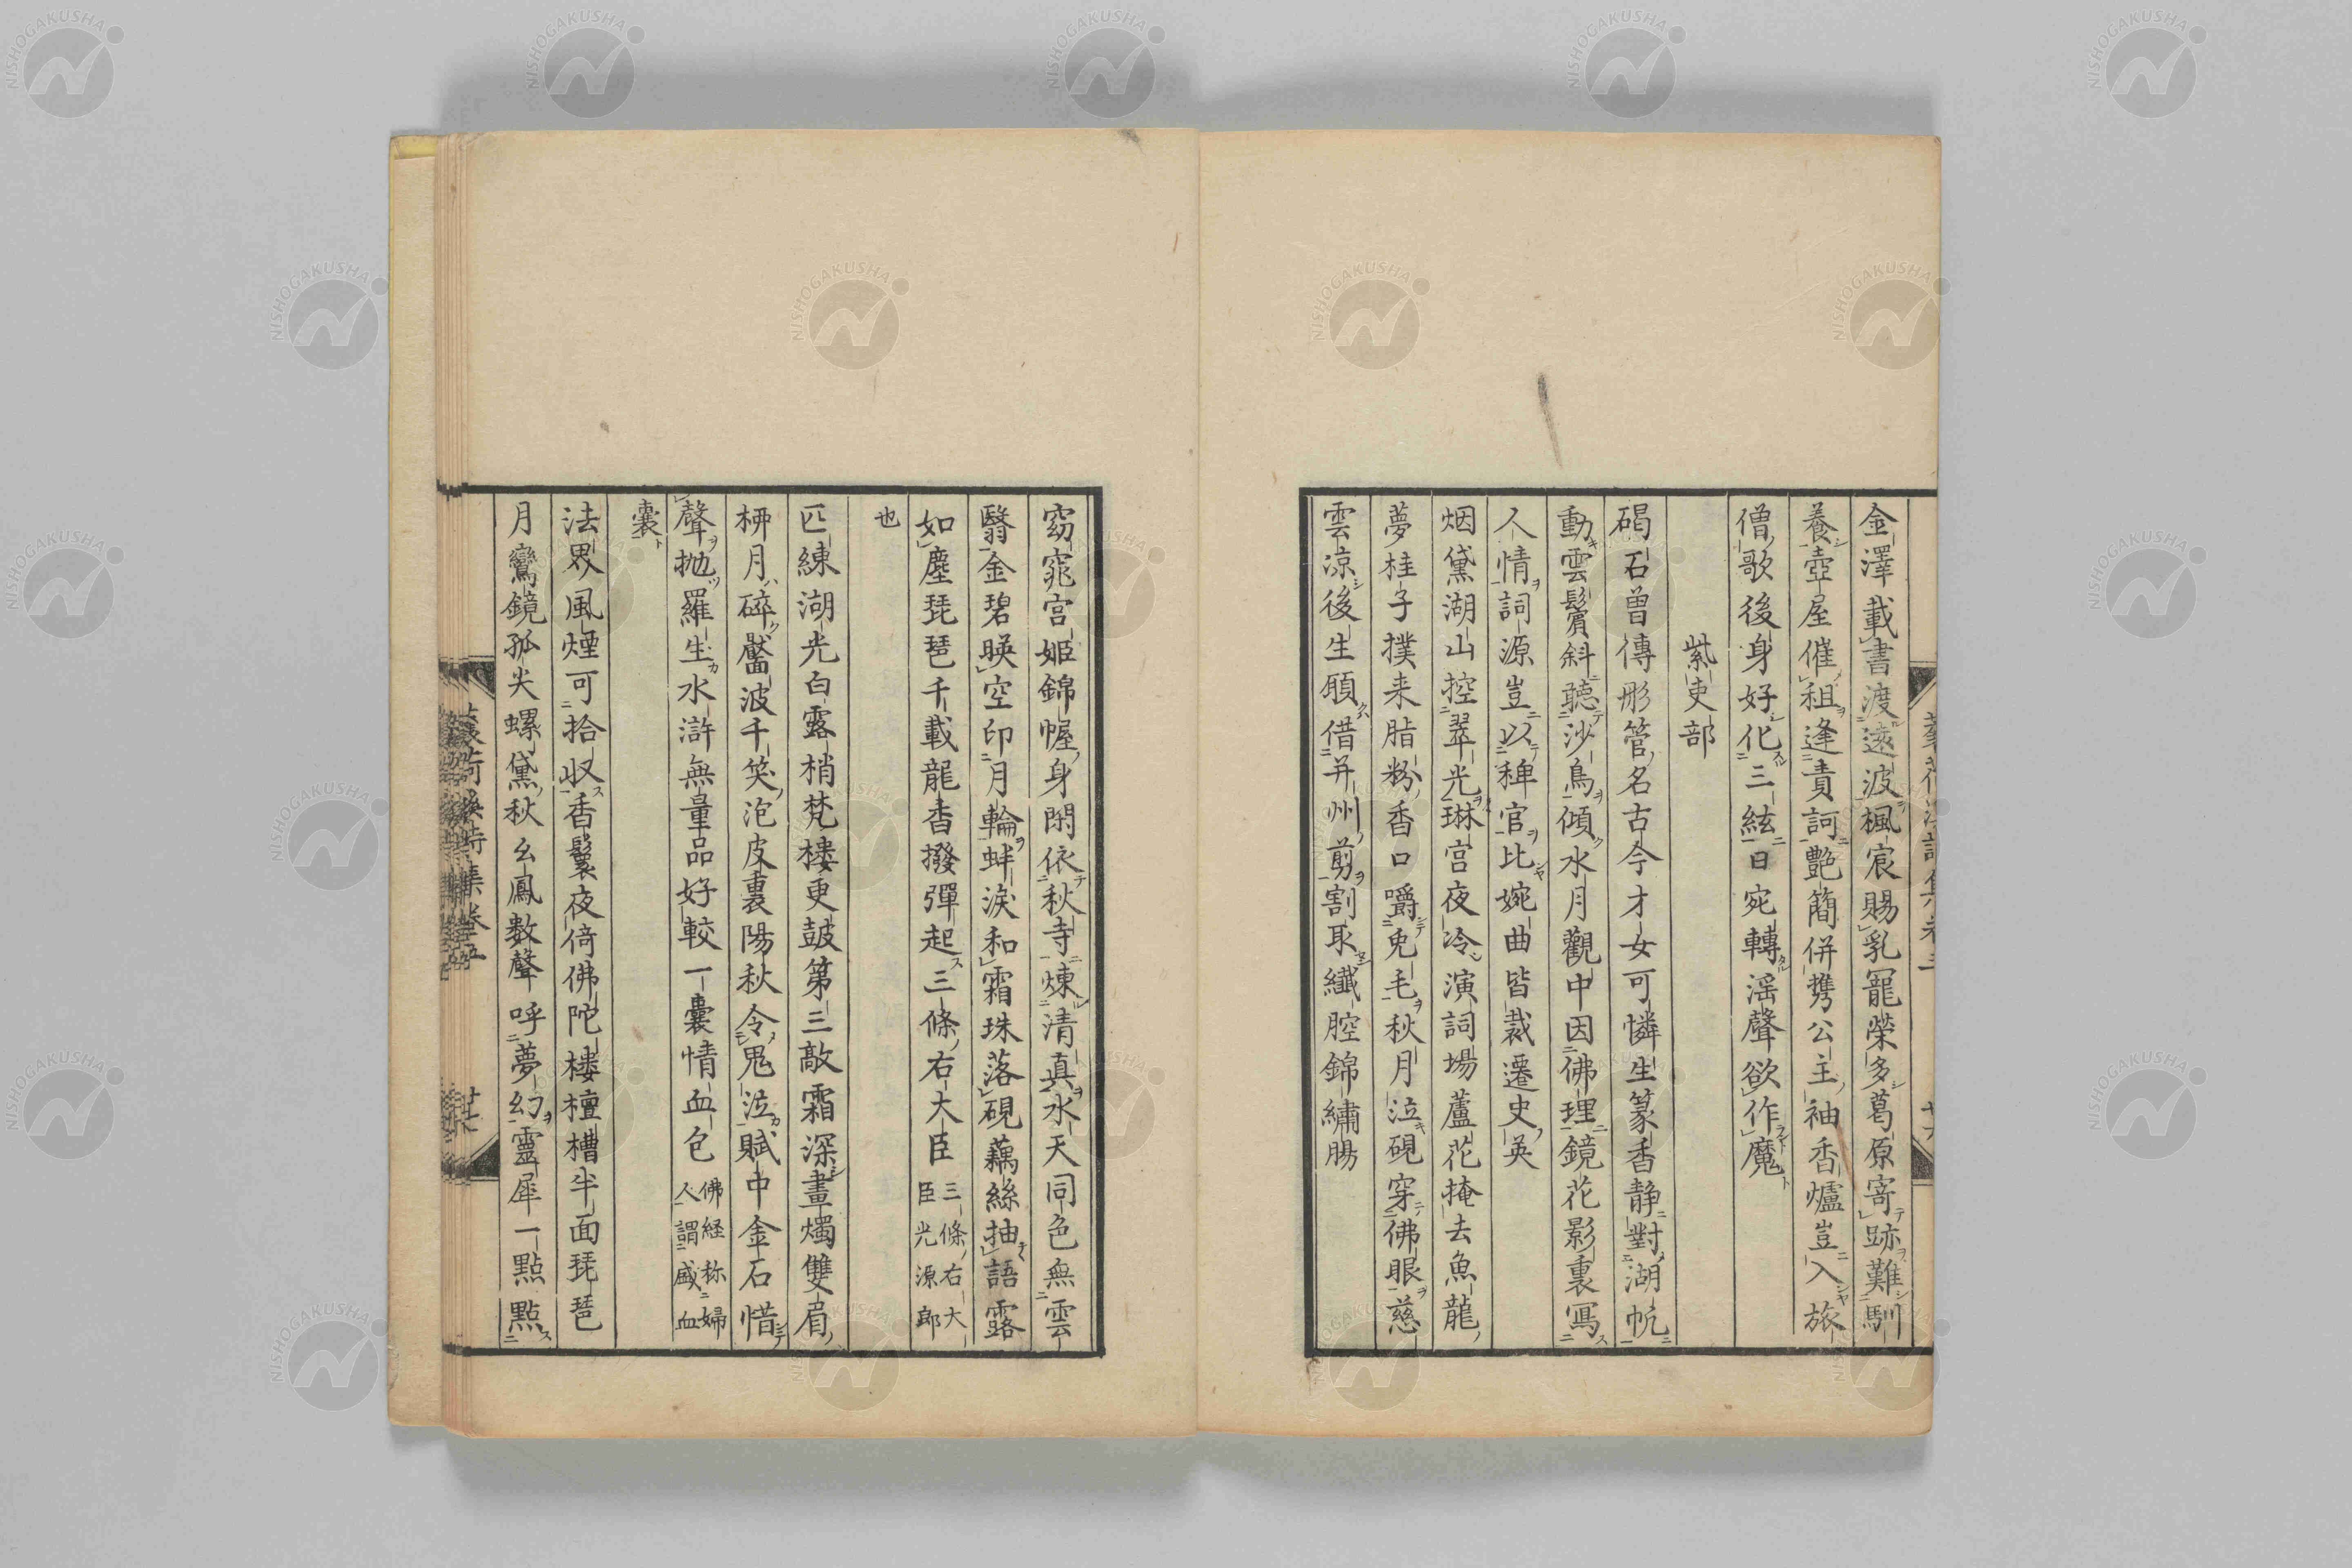 金澤載書渡遠波楓宸賜乳寵榮多葛原寄跡難馴
養壺屋催租逢責訶艶簡併携公主袖香爐豈入旅
僧歌後身好化三絃日宛轉滛聲欲作魔
紫吏部
碣石曾傳彤管名古今才女可憐生篆香静對湖帆
動雲鬟斜聽沙鳥傾水月觀中因佛理鏡花影裏寫
人情詞源豈以稗官比婉曲皆裁遷史英
烟黛湖山控翠光琳宮夜冷演詞場蘆花掩去魚龍
夢桂子撲来脂粉香口嚼兎毛秋月泣硯穿佛眼慈
雲凉後生願借并州剪割取纖腔錦繡腸
窈窕宮姬錦幄身閑依秋寺煉清真水天同色無雲
翳金碧映空印月輪蚌淚和霜珠落硯藕絲抽語露
如塵琵琶千載龍香撥彈起三條右大臣
三條右大
臣光源郎
也
匹練湖光白露梢梵楼更皷第三敲霜深畫燭雙眉
柳月碎靨波千笑泡皮裏陽秋令鬼泣賦中金石惜
聲抛羅生水滸無量品好較一囊情血包
佛経称婦
人謂盛血
囊
法界風煙可拾収香鬟夜倚佛陀楼檀槽半面琵琶
月鸞鏡孤尖螺黛秋么鳳數聲呼夢幻靈犀一點點